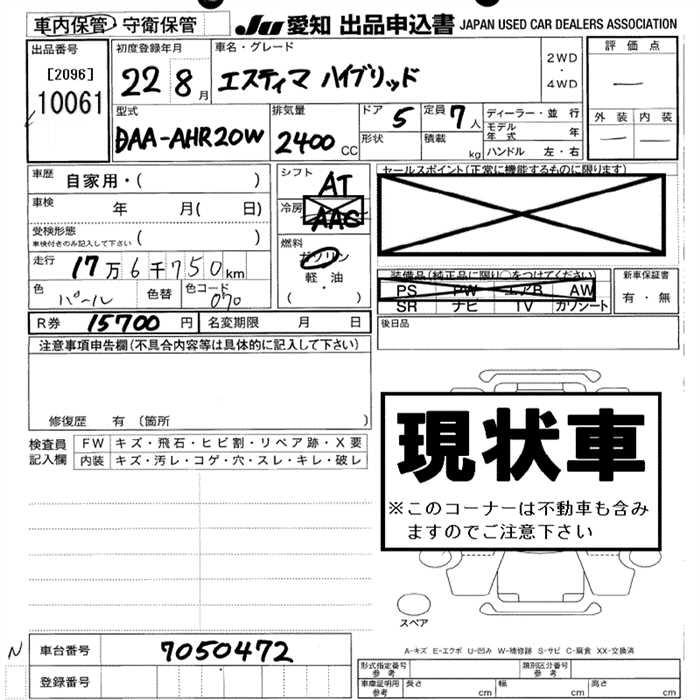 車内保管・守衛保管
JU 愛知 出品申込書 JAPAN USED CAR DEALERS ASSOCIATION
出品番号
[2096]
10061
初度登録年月
22 8月
車名・グレード
エスティマ ハイブリッド
2WD
・
4WD
評価点
―
外装 内装
― ―
型式
DAA-AHR20W
排気量
2400 CC
ドア 5
形状
定員 7人
積載 kg
ディーラー・並行
モデル年式 年
ハンドル 左・右
車歴 自家用・( )
車検 年 月( 日)
受検形態
車検付きのみ記入して下さい ( )
走行 17万6千750km
色 パール 色替 色コード 070
シフト AT
冷房 AAC
燃料
ガソリン
軽・油
( )
セールスポイント(正常に機能するものに限ります)
装備品(純正品に限り○をつけてください)
PS PW エアB AW
SR ナビ TV カワシート
新車保証書
有・無
R券 15700 円 名変期限 月 日
後日品
注意事項申告欄(不具合内容等は具体的に記入して下さい)
修復歴 有 (箇所 )
検査員記入欄
FW キズ・飛石・ヒビ割・リペア跡・X要
内装 キズ・汚レ・コゲ・穴・スレ・キレ・破レ
現状車
※このコーナーは不動車も含み
ますのでご注意下さい
スペア
A-キズ E-エクボ U-凹み W-補修跡 S-サビ C-腐食 XX-交換済
N
車台番号 7050472
登録番号
形式指定番号 参考
類別区分番号 参考
車庫証明用 参考 長さ cm 幅 cm 高さ cm